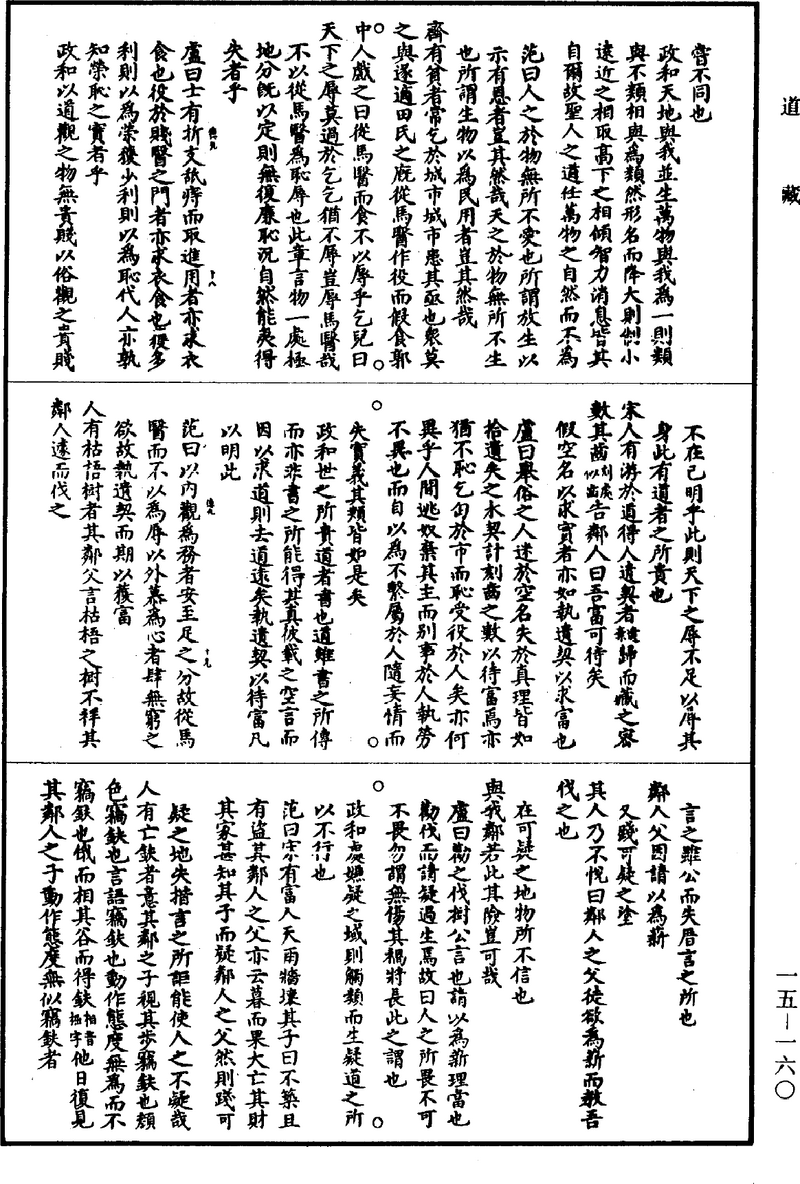 道藏
嘗不同也
政和天地與我並生萬物與我為一則類
與不類相與為類然形名而降大則制小
遠近之相取高下之相傾智力消息皆其
自爾故聖人之道任萬物之自然而不為
范曰人之於物無所不愛也所謂放生以
示有恩者豈其然哉天之於物無所不生
也所謂生物以為民用者豈其然哉
齊有貧者常乞於城市城市患其亟也衆莫
之與遂適田氏之廄從馬醫作役而假食郭
中人戲之曰從馬醫而食不以辱乎乞兒曰
天下之辱莫過於乞乞猶不辱豈辱馬醫哉
不以從馬醫為恥辱也此章言物一處極
地分既以定則無復廉恥況自然能夷得
失者乎
盧曰士有折支舐痔而取進用者亦求衣
食也役於賤醫之門者亦求衣食也獲多
利則以為榮獲少利則以為恥代人亦孰
知榮恥之實者乎
政和以道觀之物無貴賤以俗觀之貴賤
不在己明乎此則天下之辱不足以辱其
身此有道者之所貴也
宋人有游於道得人遺契者歸而藏之密
數其齒刻處似齒告鄰人曰吾富可待矣
假空名以求實者亦如執遺契以求富也
盧曰舉俗之人迷於空名失於真理皆如
拾遺失之木契計刻齒之數以待富焉亦
猶不恥乞匄於市而恥受役於人矣亦何
異乎人間逃奴棄其主而別事於人執勞
不異也而自以為不繫屬於人隨妄情而
失實義其類皆如是矣
政和世之所貴道者書也道雖書之所傳
而亦非書之所能得其真彼載之空言而
因以求道則去道遠矣執遺契以待富凡
以明此
范曰以內觀為務者安至足之分故從馬
醫而不以為辱以外慕為心者肆無窮之
欲故執遺契而期以獲富
人有枯梧樹者其鄰父言枯梧之樹不祥其
鄰人遽而伐之
言之雖公而失厝言之所也
鄰人父因請以為薪
又踐可疑之塗
其人乃不悅曰鄰人之父徒欲為薪而教吾
伐之也
在可疑之地物所不信也
與我鄰若此其險豈可哉
盧曰勸之伐樹公言也請以為薪理當也
勸伐而請疑過生焉故曰人之所畏不可
不畏勿謂無傷其禍將長此之謂也
政和處嫌疑之域則觸類而生疑道之所
以不行也
范曰宋有富人天雨牆壞其子曰不築且
有盜其鄰人之父亦云暮而果大亡其財
其家甚知其子而疑鄰人之父然則踐可
疑之地失措言之所詎能使人之不疑哉
人有亡鈇者意其鄰之子視其步竊鈇也顏
色竊鈇也言語竊鈇也動作態度無為而不
竊鈇也俄而相其谷而得鈇他日復見
其鄰人之子動作態度無似竊鈇者
一五—一六〇